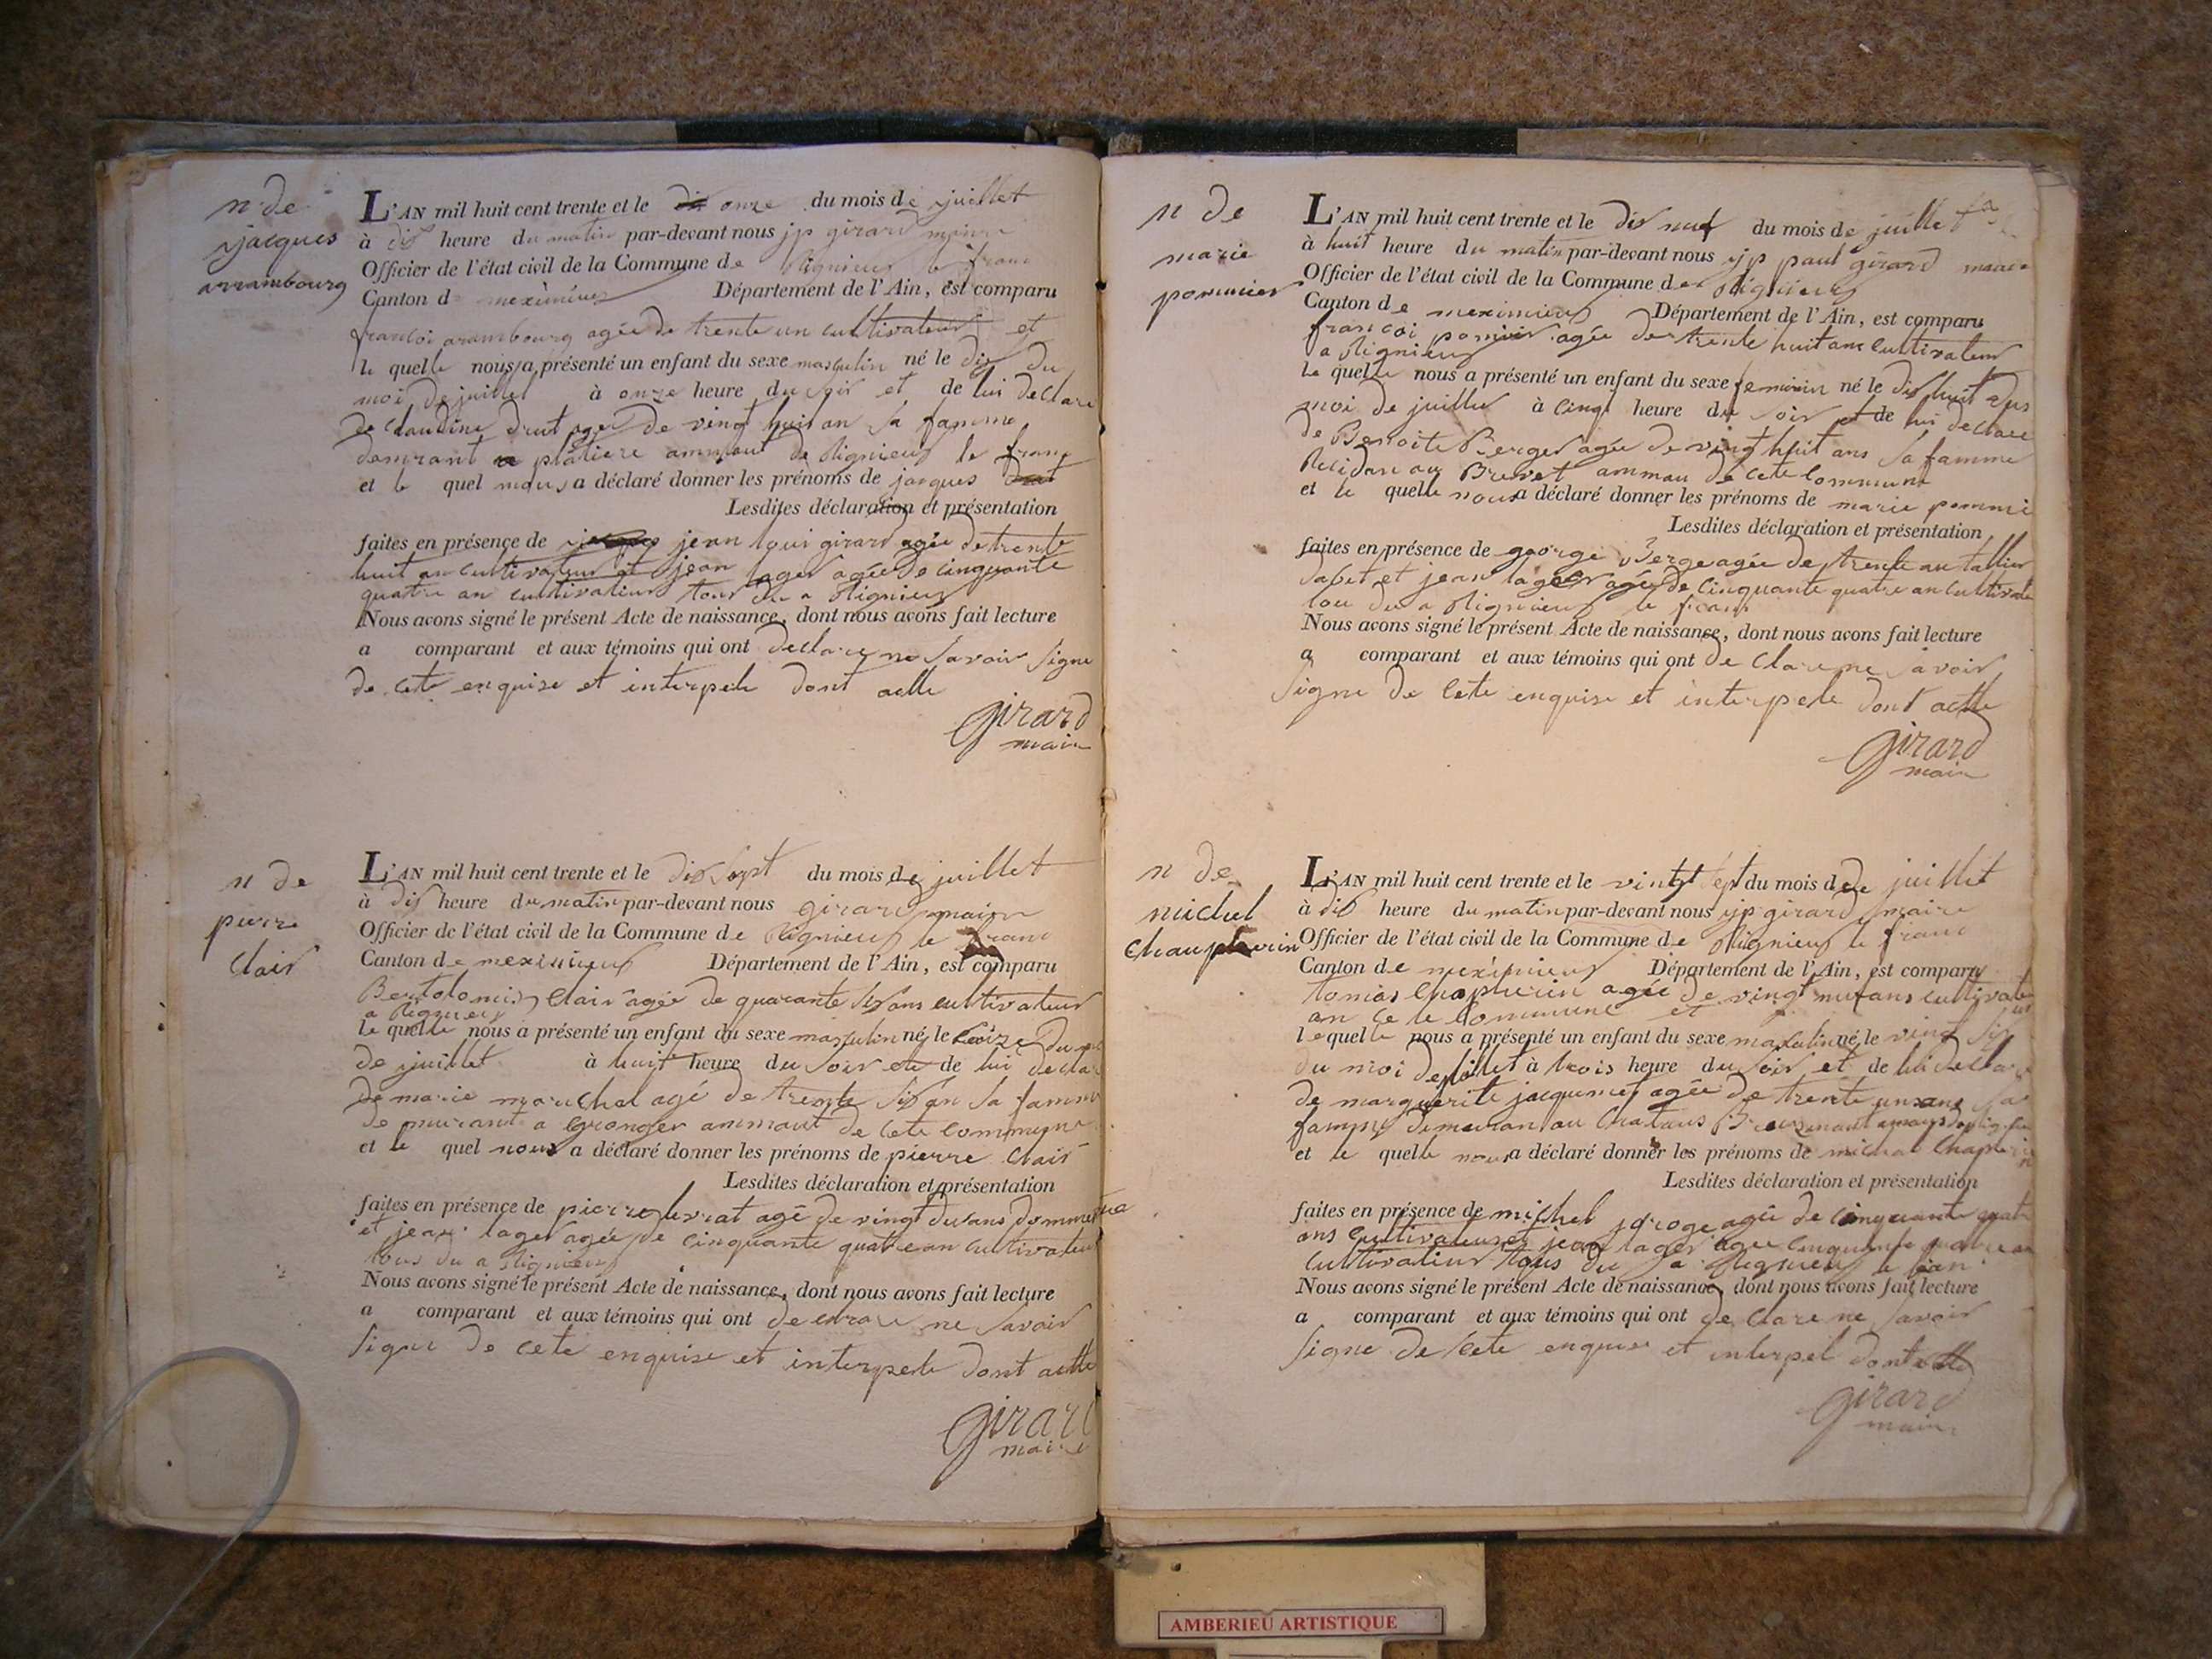 n de
jacques
arrambourg
L'AN mil huit cent trente et le onze du mois de juillet
à dix heure du matin par-devant nous jp girard maire
Officier de l'état civil de la Commune de Rignieux le franc
Canton de meximieux Département de l'Ain, est comparu
francoi arambourg agée de trente un cultivateur et
le quelle nous a présenté un enfant du sexe masculin né le dix du
moi de juillet à onze heure du soir et de lui declare
de Claudine drut agee de vingt huit an sa famme
demrant a platiere ammaut de Rignieux le franc
et le quel nous a déclaré donner les prénoms de jacques
Lesdites déclaration et présentation
faites en présence de jean loui girard agée de trente
huit an cultivateur et jean lager agée de cinquante
quatre an cultivateur tous du a Rignieux
Nous avons signé le présent Acte de naissance, dont nous avons fait lecture
a comparant et aux témoins qui ont declare ne savoir signe
de cete enquise et interpele dont actte
girard
maire
n de
pierre
Clair
L'AN mil huit cent trente et le dix sept du mois de juillet
à dix heure du matin par-devant nous girard maire
Officier de l'état civil de la Commune de Rignieux le franc
Canton de meximieux Département de l'Ain, est comparu
Bertolomis Clair agée de quarante six ans cultivateur
a Rignieux
le quelle nous a présenté un enfant du sexe masculin né le seize du
de juillet à huit heure du soir et de lui declar
de marie marichal agé de trente six an sa famme
de murant a gronger ammaut de cete commune
et le quel nous a déclaré donner les prénoms de pierre Clair
Lesdites déclaration et présentation
faites en présence de pierre levrat agé de vingt du ans
et jean lager agée de cinquante quatre an cultivateur
tous du a Rignieux
Nous avons signé le présent Acte de naissance, dont nous avons fait lecture
a comparant et aux témoins qui ont declare ne savoir
signe de cete enquise et interpele dont actte
girard
maire
n de
marie
pommier
L'AN mil huit cent trente et le dix neuf du mois de juillet
à huit heure du matin par-devant nous jp paul girard maire
Officier de l'état civil de la Commune de Rignieux
Canton de meximieux Département de l'Ain, est comparu
francoi pomier agée de trente huit ans cultivateur
a Rignieux
le quelle nous a présenté un enfant du sexe feminin né le dix huit du
moi de juillet à cinq heure du soir et de lui declare
de Benoite Berger agée de vingt huit ans sa famme
Residan au Brevet ammau de cete commune
et le quelle nous a déclaré donner les prénoms de marie pommi
Lesdites déclaration et présentation
faites en présence de george Berge agée de trente an tallieur
dabit et jean lager agée de cinquante quatre an cultivate
tou du a Rignieux le franc
Nous avons signé le présent Acte de naissance, dont nous avons fait lecture
a comparant et aux témoins qui ont de clare ne savoir
signe de cete enquise et interpele dont actte
girard
maire
n de
michel
Chauplurin
L'AN mil huit cent trente et le vingt sept du mois de juillet
à dix heure du matin par-devant nous jp girard maire
Officier de l'état civil de la Commune de Rignieux le franc
Canton de meximieux Département de l'Ain, est comparu
tomas Chaplurin agée de vingt neuf ans cultivateur
an cete Commune et
lequelle nous a présenté un enfant du sexe masculin né le vingt six
du moi de juillet à trois heure du soir et de lui declare
de marguerite jacquemet agée de trente un ans sa
famme demeuran au
et le quelle nous a déclaré donner les prénoms de michel Chaplurin
Lesdites déclaration et présentation
faites en présence de michel agée de cinquante quatre
ans cultivateur et jean lager agée cinquante quatre an
cultivateur tous du a Rignieux le franc
Nous avons signé le présent Acte de naissance, dont nous avons fait lecture
a comparant et aux témoins qui ont de clare ne savoir
signe de cete enquise et interpel dont actte
girard
maire
AMBERIEU ARTISTIQUE